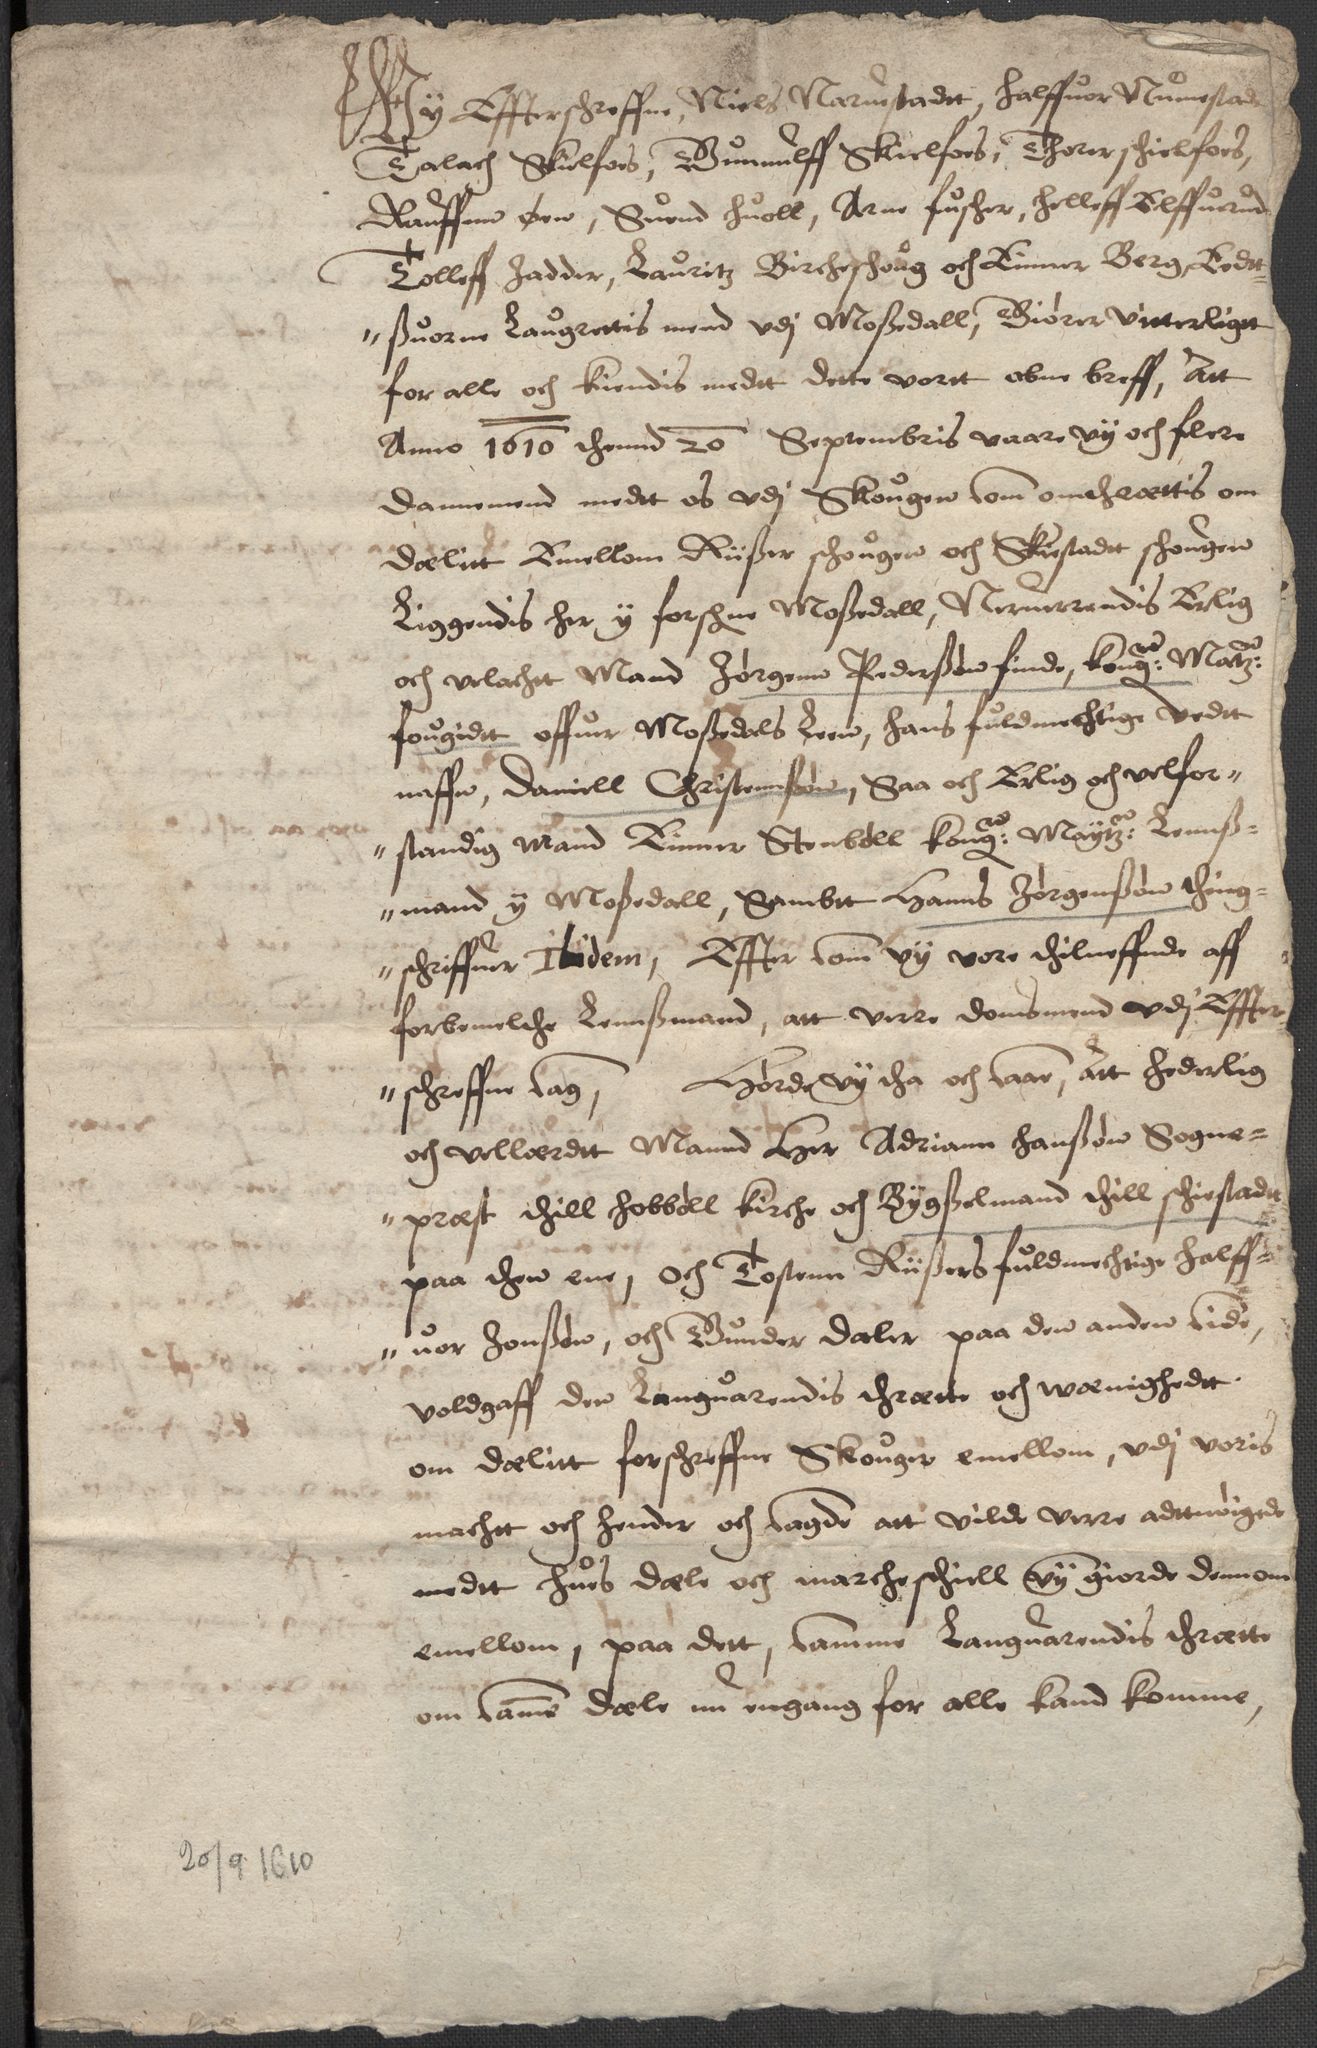 Wy Effterschreffne, Niels Narnestadtt, Halffuor Nunestad
Talach Skielfoes, Gunnulff Skielfoes, Thorer schielfoes,
Rauffnn øen, Suend huoll, Arne fuscher, Helleff Elffuerud
Tolleff Jadder, Lauritz Bircheshoug och Einner Berg, Eedtt-
"suorne Laugrettis mend vdj Mossedall, Giører vitterligtt
for alle och kiendis medtt dette vortt obne breff, Att
Anno 1610 thennd 20 Septembris vaare vy och flere
dannemend medtt os vdj Skougen som omthrættis om
dælitt Emellom Rüsser schougen och Skiestadtt schougen
Liggendis her y forschne Mossedall, Neruerrendis Erlig
och velachtt Mand Jørgenn Pederssøn finde, kong: Matz:
fougidtt offuer Mossedals Leen, hans fuldmechtige vedtt
naffn, Daniell Christennsøn, Saa och Erlig och velfor"
"standig mand Einner Stenbøll kong: Maÿtz: Lennss-
"mand y Mossedall, Sambtt Hanns Jørgenssøn thing-
"schriffuer Ibidem, Effter som vy vore thilneffnde aff
forbemelthe Lennssmand, att verre domsmend vdj Effter-
"schreffne sag, Hørde vy tha och saae, Att hederlig
och vellærdtt Mannd Her Adriann Hanssøn Sogne-
"præst thill Hobbøll kirche och Bygsselmand thill schiestadtt
paa then ene, Och Tostenn Rüssers fuldmechtige Halff-
"uor Jonssøn, och Gunder Dæler paa den anden side,
voldgaff den Languarendis thrætte och wænighedtt
om dælitt forschreffne Skouger emellom, vdj voris
machtt och hender och sagde att vilde verre adttnøigede
medtt hues dæle och marcheschiell vy giorde dennom
emellom, paa dett, samme Languarendis thrætte
om samme dæle nu engang for alle kand komme,
20/9 1610